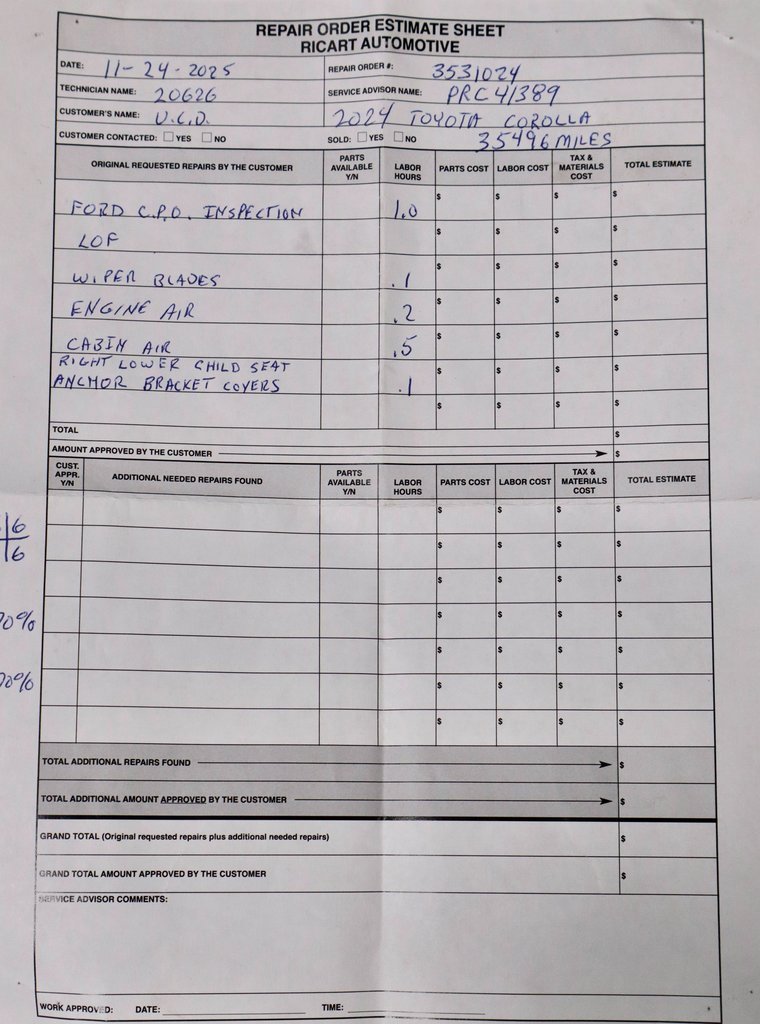 REPAIR ORDER ESTIMATE SHEET
RICART AUTOMOTIVE
DATE: 11-24-2025 REPAIR ORDER #: 3531024
TECHNICIAN NAME: 20626 SERVICE ADVISOR NAME: PRC41389
CUSTOMER'S NAME: U.C.D. 2024 TOYOTA COROLLA
CUSTOMER CONTACTED: YES NO SOLD: YES NO 35496 MILES
ORIGINAL REQUESTED REPAIRS BY THE CUSTOMER PARTS AVAILABLE Y/N LABOR HOURS PARTS COST LABOR COST TAX & MATERIALS COST TOTAL ESTIMATE
FORD C.P.O. INSPECTION 1.0 $ $ $ $
LOF $ $ $ $
WIPER BLADES .1 $ $ $ $
ENGINE AIR .2 $ $ $ $
CABIN AIR .5 $ $ $ $
RIGHT LOWER CHILD SEAT
ANCHOR BRACKET COVERS .1 $ $ $ $
$ $ $ $
TOTAL $
AMOUNT APPROVED BY THE CUSTOMER $
CUST. APPR. Y/N ADDITIONAL NEEDED REPAIRS FOUND PARTS AVAILABLE Y/N LABOR HOURS PARTS COST LABOR COST TAX & MATERIALS COST TOTAL ESTIMATE
$ $ $ $
6 $ $ $ $
6
$ $ $ $
0% $ $ $ $
$ $ $ $
0% $ $ $ $
$ $ $ $
TOTAL ADDITIONAL REPAIRS FOUND $
TOTAL ADDITIONAL AMOUNT APPROVED BY THE CUSTOMER $
GRAND TOTAL (Original requested repairs plus additional needed repairs) $
GRAND TOTAL AMOUNT APPROVED BY THE CUSTOMER $
SERVICE ADVISOR COMMENTS:
WORK APPROVED: DATE: TIME: